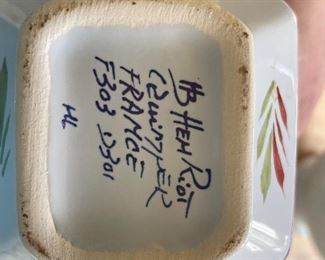 HB HENRIOT
QUIMPER
FRANCE
F303 D301
HL